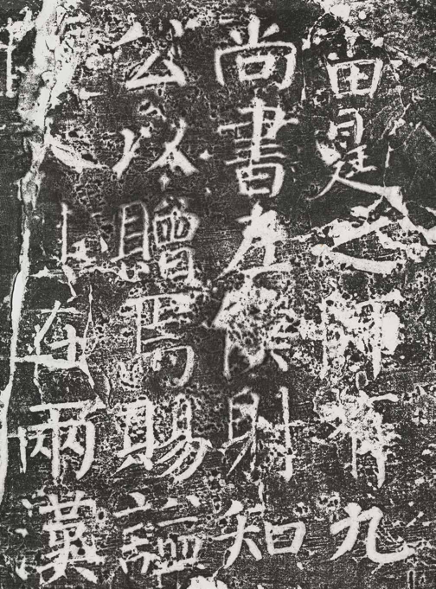 由是師釋九
尚書左僕射知
公以贈焉賜謚
在兩漢